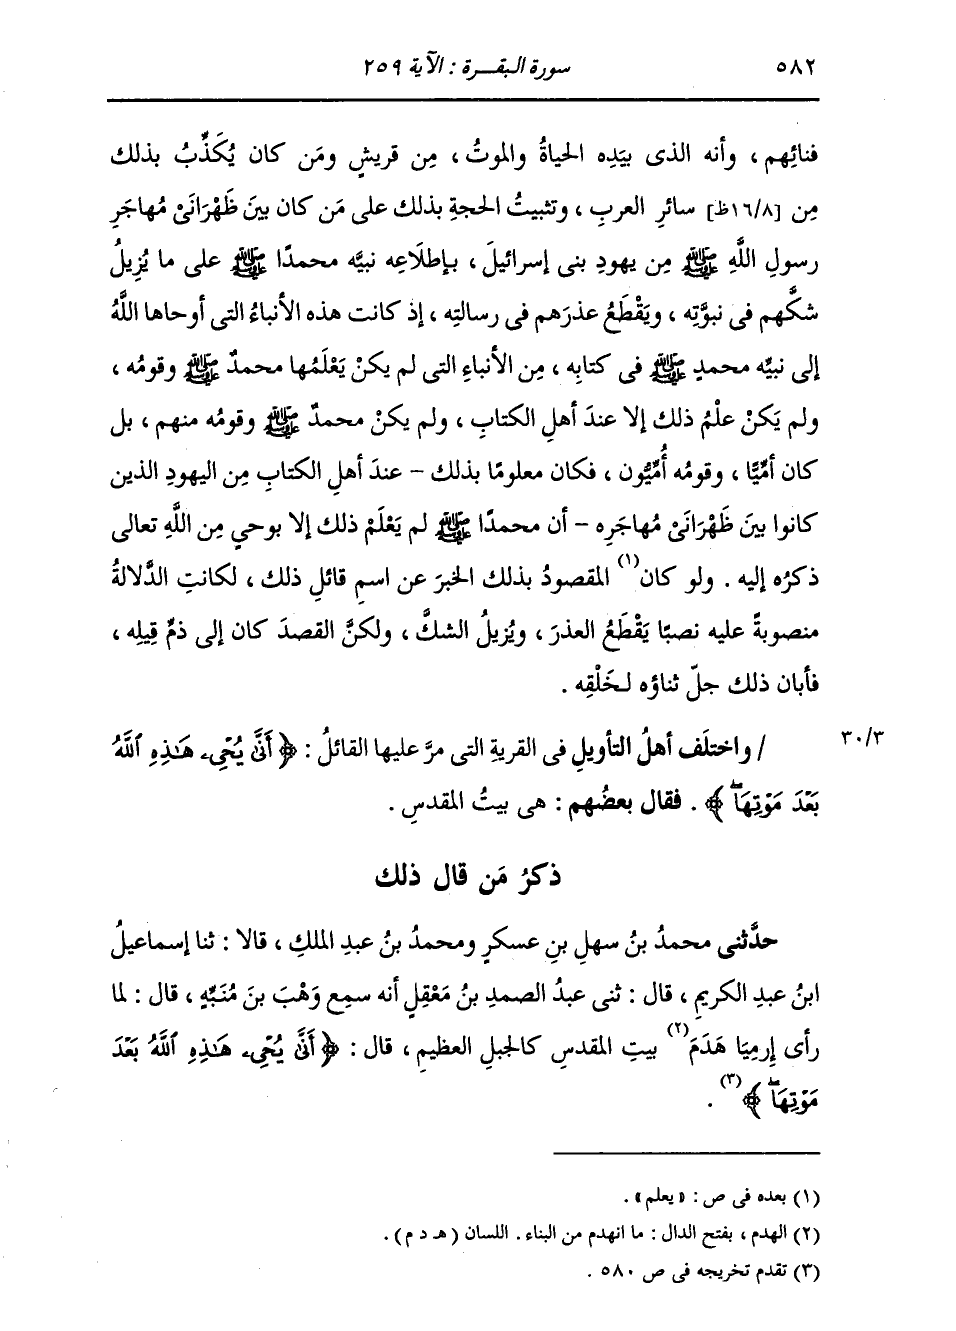 ٥٨٢ سورة البقــرة : الآية ٢٥٩
فنائِهم ، وأنه الذى بيَدِه الحياةُ والموتُ ، مِن قريشٍ ومَن كان يُكَذِّبُ بذلك
مِن [١٦/٨ظ] سائرِ العربِ ، وتثبيتُ الحجةِ بذلك على مَن كان بينَ ظَهْرَانَىْ مُهاجَرِ
رسولِ اللَّهِ ﷺ مِن يهودِ بنى إسرائيلَ ، بإطلاعِه نبيَّه محمدًا ﷺ على ما يُزِيلُ
شكَّهم فى نبوَّتِه ، ويَقْطَعُ عذرَهم فى رسالتِه ، إذ كانت هذه الأنباءُ التى أوحاها اللَّهُ
إلى نبيِّه محمدٍ ﷺ فى كتابِه ، مِن الأنباءِ التى لم يكنْ يَعْلَمُها محمدٌ ﷺ وقومُه ،
ولم يَكنْ علْمُ ذلك إلا عندَ أهلِ الكتابِ ، ولم يكنْ محمدٌ ﷺ وقومُه منهم ، بل
كان أمِّيًّا ، وقومُه أُمِّيُّون ، فكان معلومًا بذلك - عندَ أهلِ الكتابِ مِن اليهودِ الذين
كانوا بينَ ظَهْرَانَىْ مُهاجَرِه - أن محمدًا ﷺ لم يَعْلَمْ ذلك إلا بوحيٍ مِن اللَّهِ تعالى
ذكرُه إليه . ولو كان(١) المقصودُ بذلك الخبرَ عن اسمِ قائلِ ذلك ، لكانتِ الدَّلالةُ
منصوبةً عليه نصبًا يَقْطَعُ العذرَ ، ويُزيلُ الشكَّ ، ولكنَّ القصدَ كان إلى ذمِّ قِيلِه ،
فأبان ذلك جلّ ثناؤه لخَلْقِه .
٣٠/٣ / واختلَف أهلُ التأويلِ فى القريةِ التى مرَّ عليها القائلُ : ﴿ أَنَّىٰ يُحْىِۦ هَٰذِهِ ٱللَّهُ
بَعْدَ مَوْتِهَاۖ ﴾ . فقال بعضُهم : هى بيتُ المقدسِ .
ذكرُ مَن قال ذلك
حدَّثنى محمدُ بنُ سهلِ بنِ عسكرٍ ومحمدُ بنُ عبدِ الملكِ ، قالا : ثنا إسماعيلُ
ابنُ عبدِ الكريمِ ، قال : ثنى عبدُ الصمدِ بنُ مَعْقِلٍ أنه سمِع وَهْبَ بنَ مُنَبِّهٍ ، قال : لما
رأى إِرمِيَا هَدَمَ(٢) بيتِ المقدسِ كالجبلِ العظيمِ ، قال : ﴿ أَنَّىٰ يُحْىِۦ هَٰذِهِ ٱللَّهُ بَعْدَ
مَوْتِهَاۖ ﴾(٣) .
(١) بعده فى ص : « يعلم » .
(٢) الهدم ، بفتح الدال : ما انهدم من البناء . اللسان ( هـ د م ) .
(٣) تقدم تخريجه فى ص ٥٨٠ .